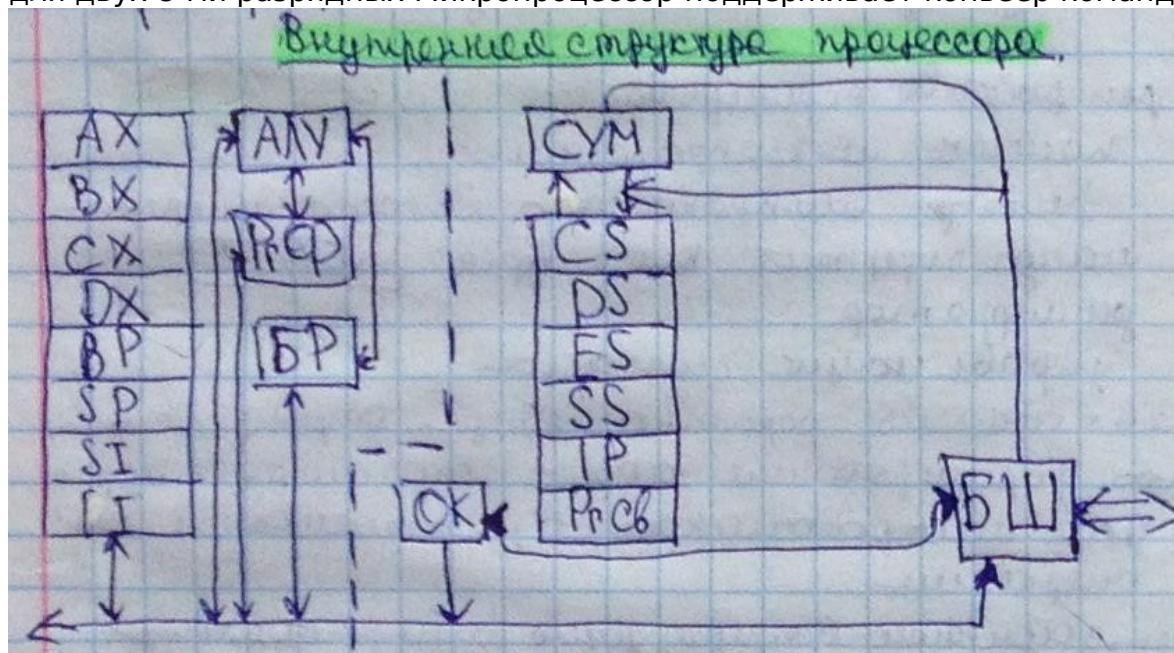 для двух 8-ми разрядных Микропроцессор поддерживает конвеер команд
Внутренняя структура процессора.
AX
BX
CX
DX
BP
SP
SI
АЛУ
РгФ
БР
ОК
СУМ
CS
DS
ES
SS
IP
РгСв
БШ